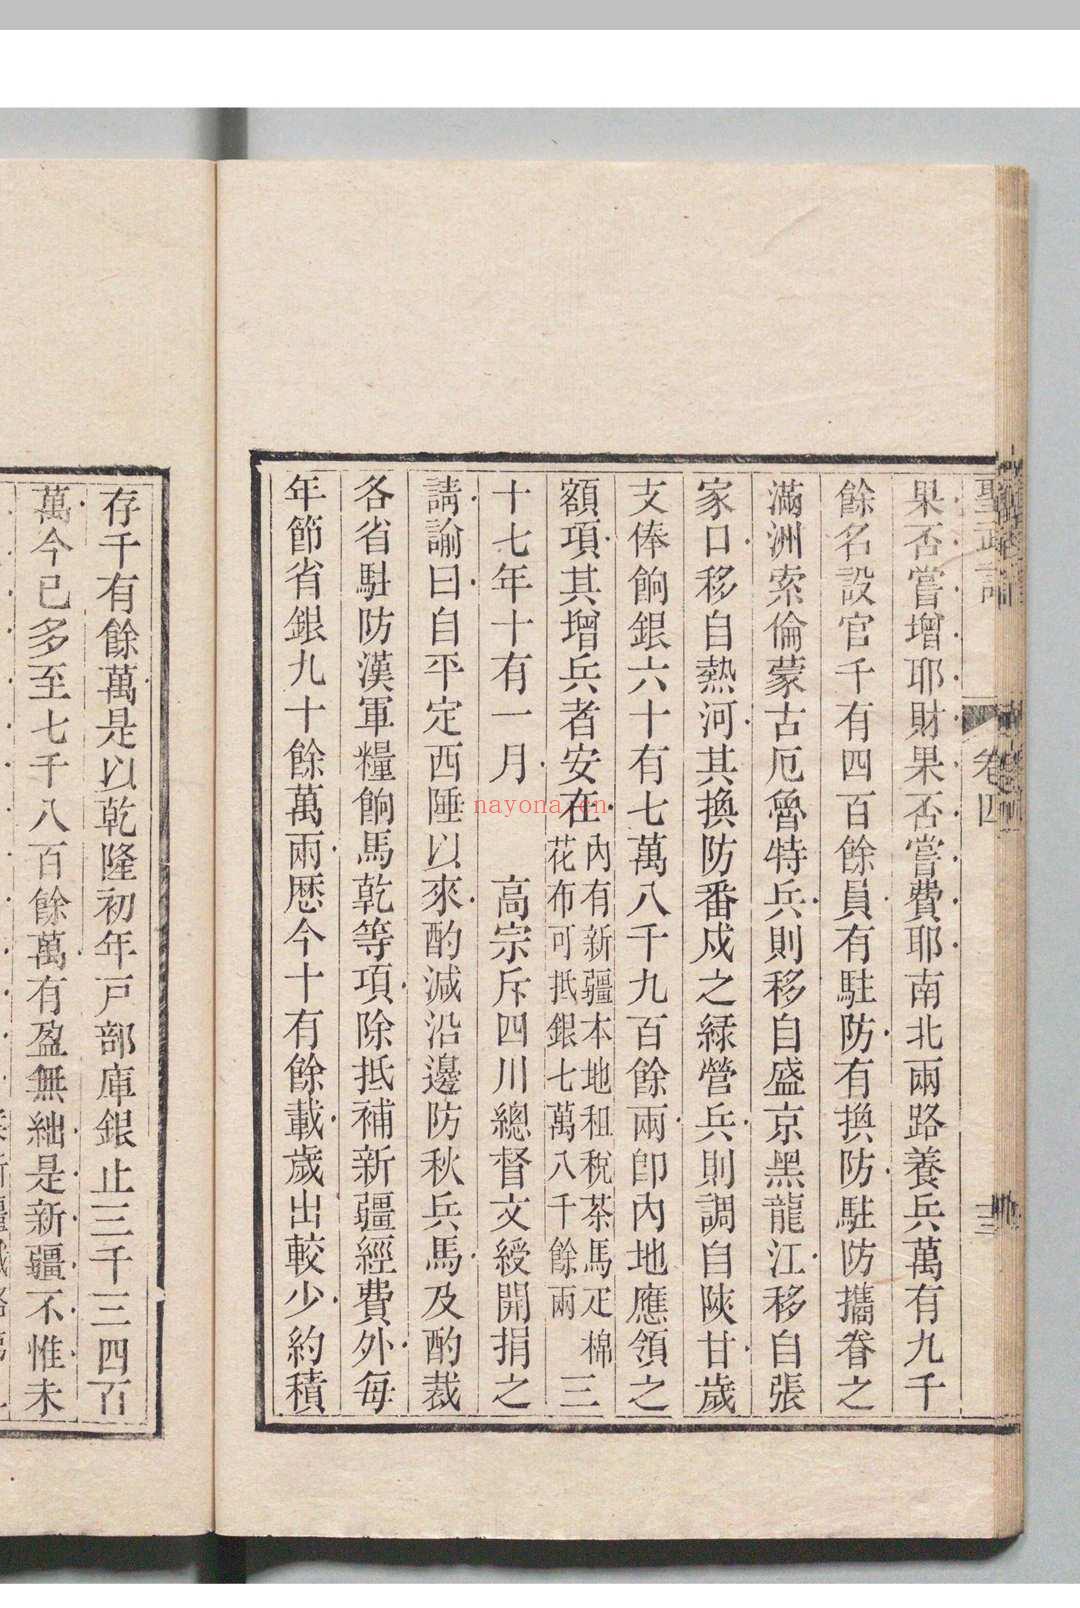 聖武記 卷四
果否嘗增耶財果否嘗費耶南北兩路養兵萬有九千
餘名設官千有四百餘員有駐防有換防駐防攜眷之
滿洲索倫蒙古厄魯特兵則移自盛京黑龍江移自張
家口移自熱河其換防番戍之緑營兵則調自陝甘歲
支俸餉銀六十有七萬八千九百餘兩卽內地應領之
額項其增兵者安在內有新疆本地租稅茶馬疋棉花布可抵銀七萬八千餘兩三
十七年十有一月高宗斥四川總督文綬開捐之
請諭曰自平定西陲以來酌減沿邊防秋兵馬及酌裁
各省駐防漢軍糧餉馬乾等項除抵補新疆經費外每
年節省銀九十餘萬兩歷今十有餘載歲出較少約積
存千有餘萬是以乾隆初年戸部庫銀止三千三四百
萬今已多至七千八百餘萬有盈無絀是新疆不惟未
nayona.cn